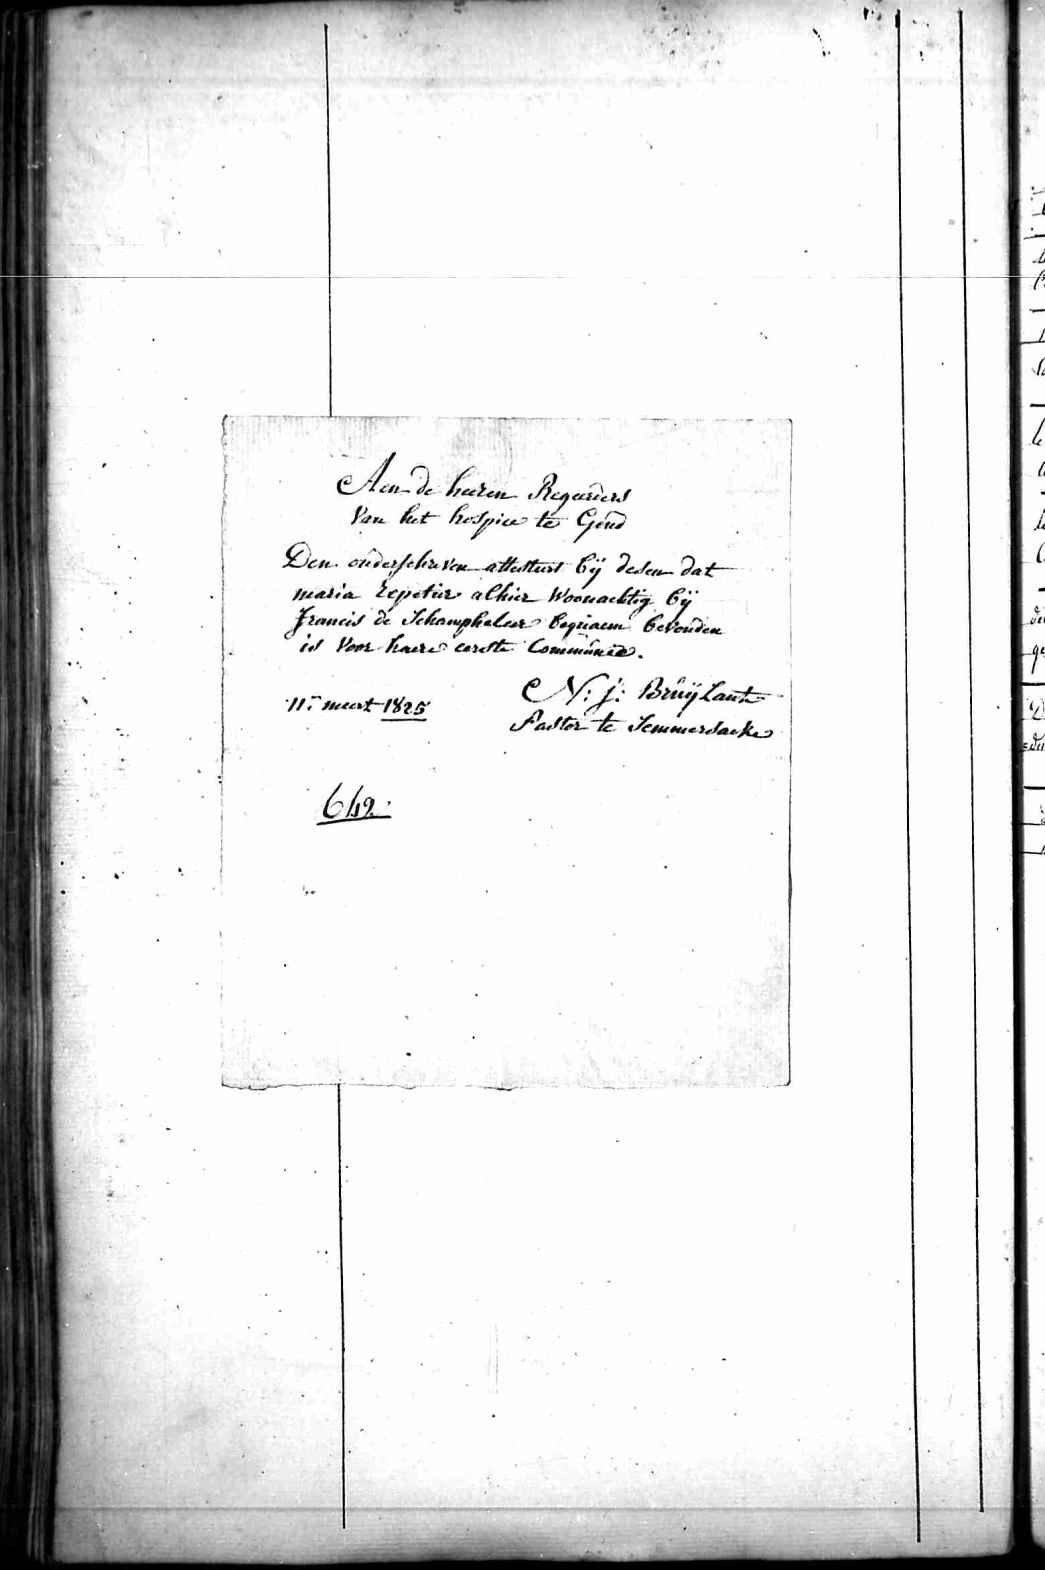 Aen de heeren Regeerders
van het hospice te Gend
Den onderschreven attesteert bij desen dat
maria Repetir alhier Woonachtig bij
francis de Schampheleer bequaem bevonden
is voor haere eerste Communie.
11: meert 1825
N: j: Bruÿlant
Pastor te Semmersaeke
642